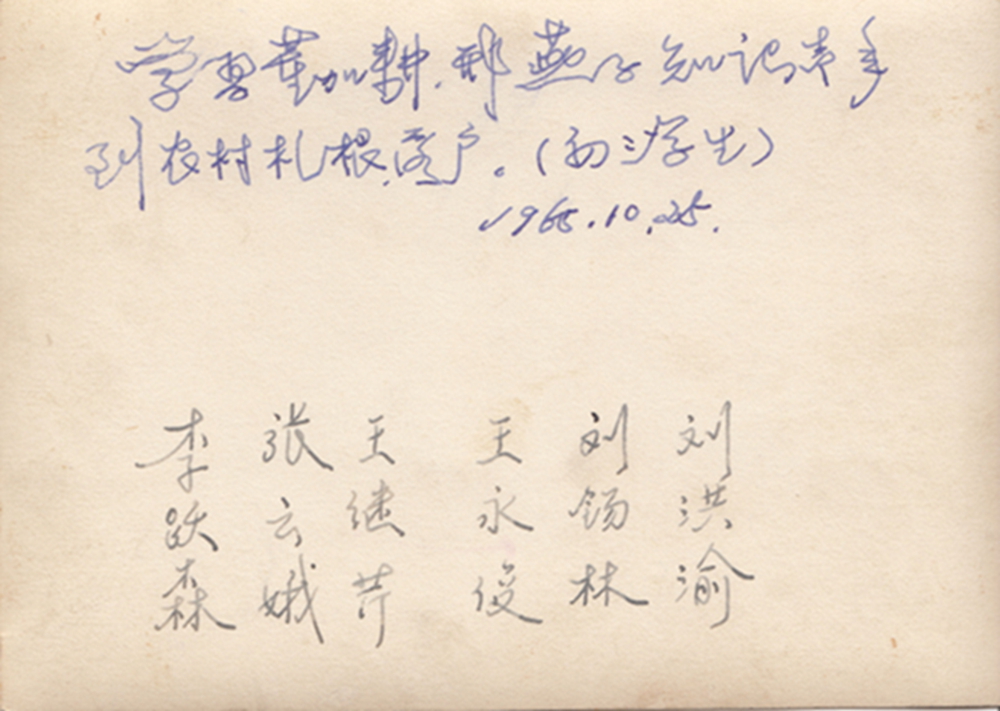 学习董加耕.邢燕子知识青年
到农村札根落户。(初三学生)
1965.10.25.
李跃森
张云娥
王继芹
王永俊
刘锡林
刘洪渝